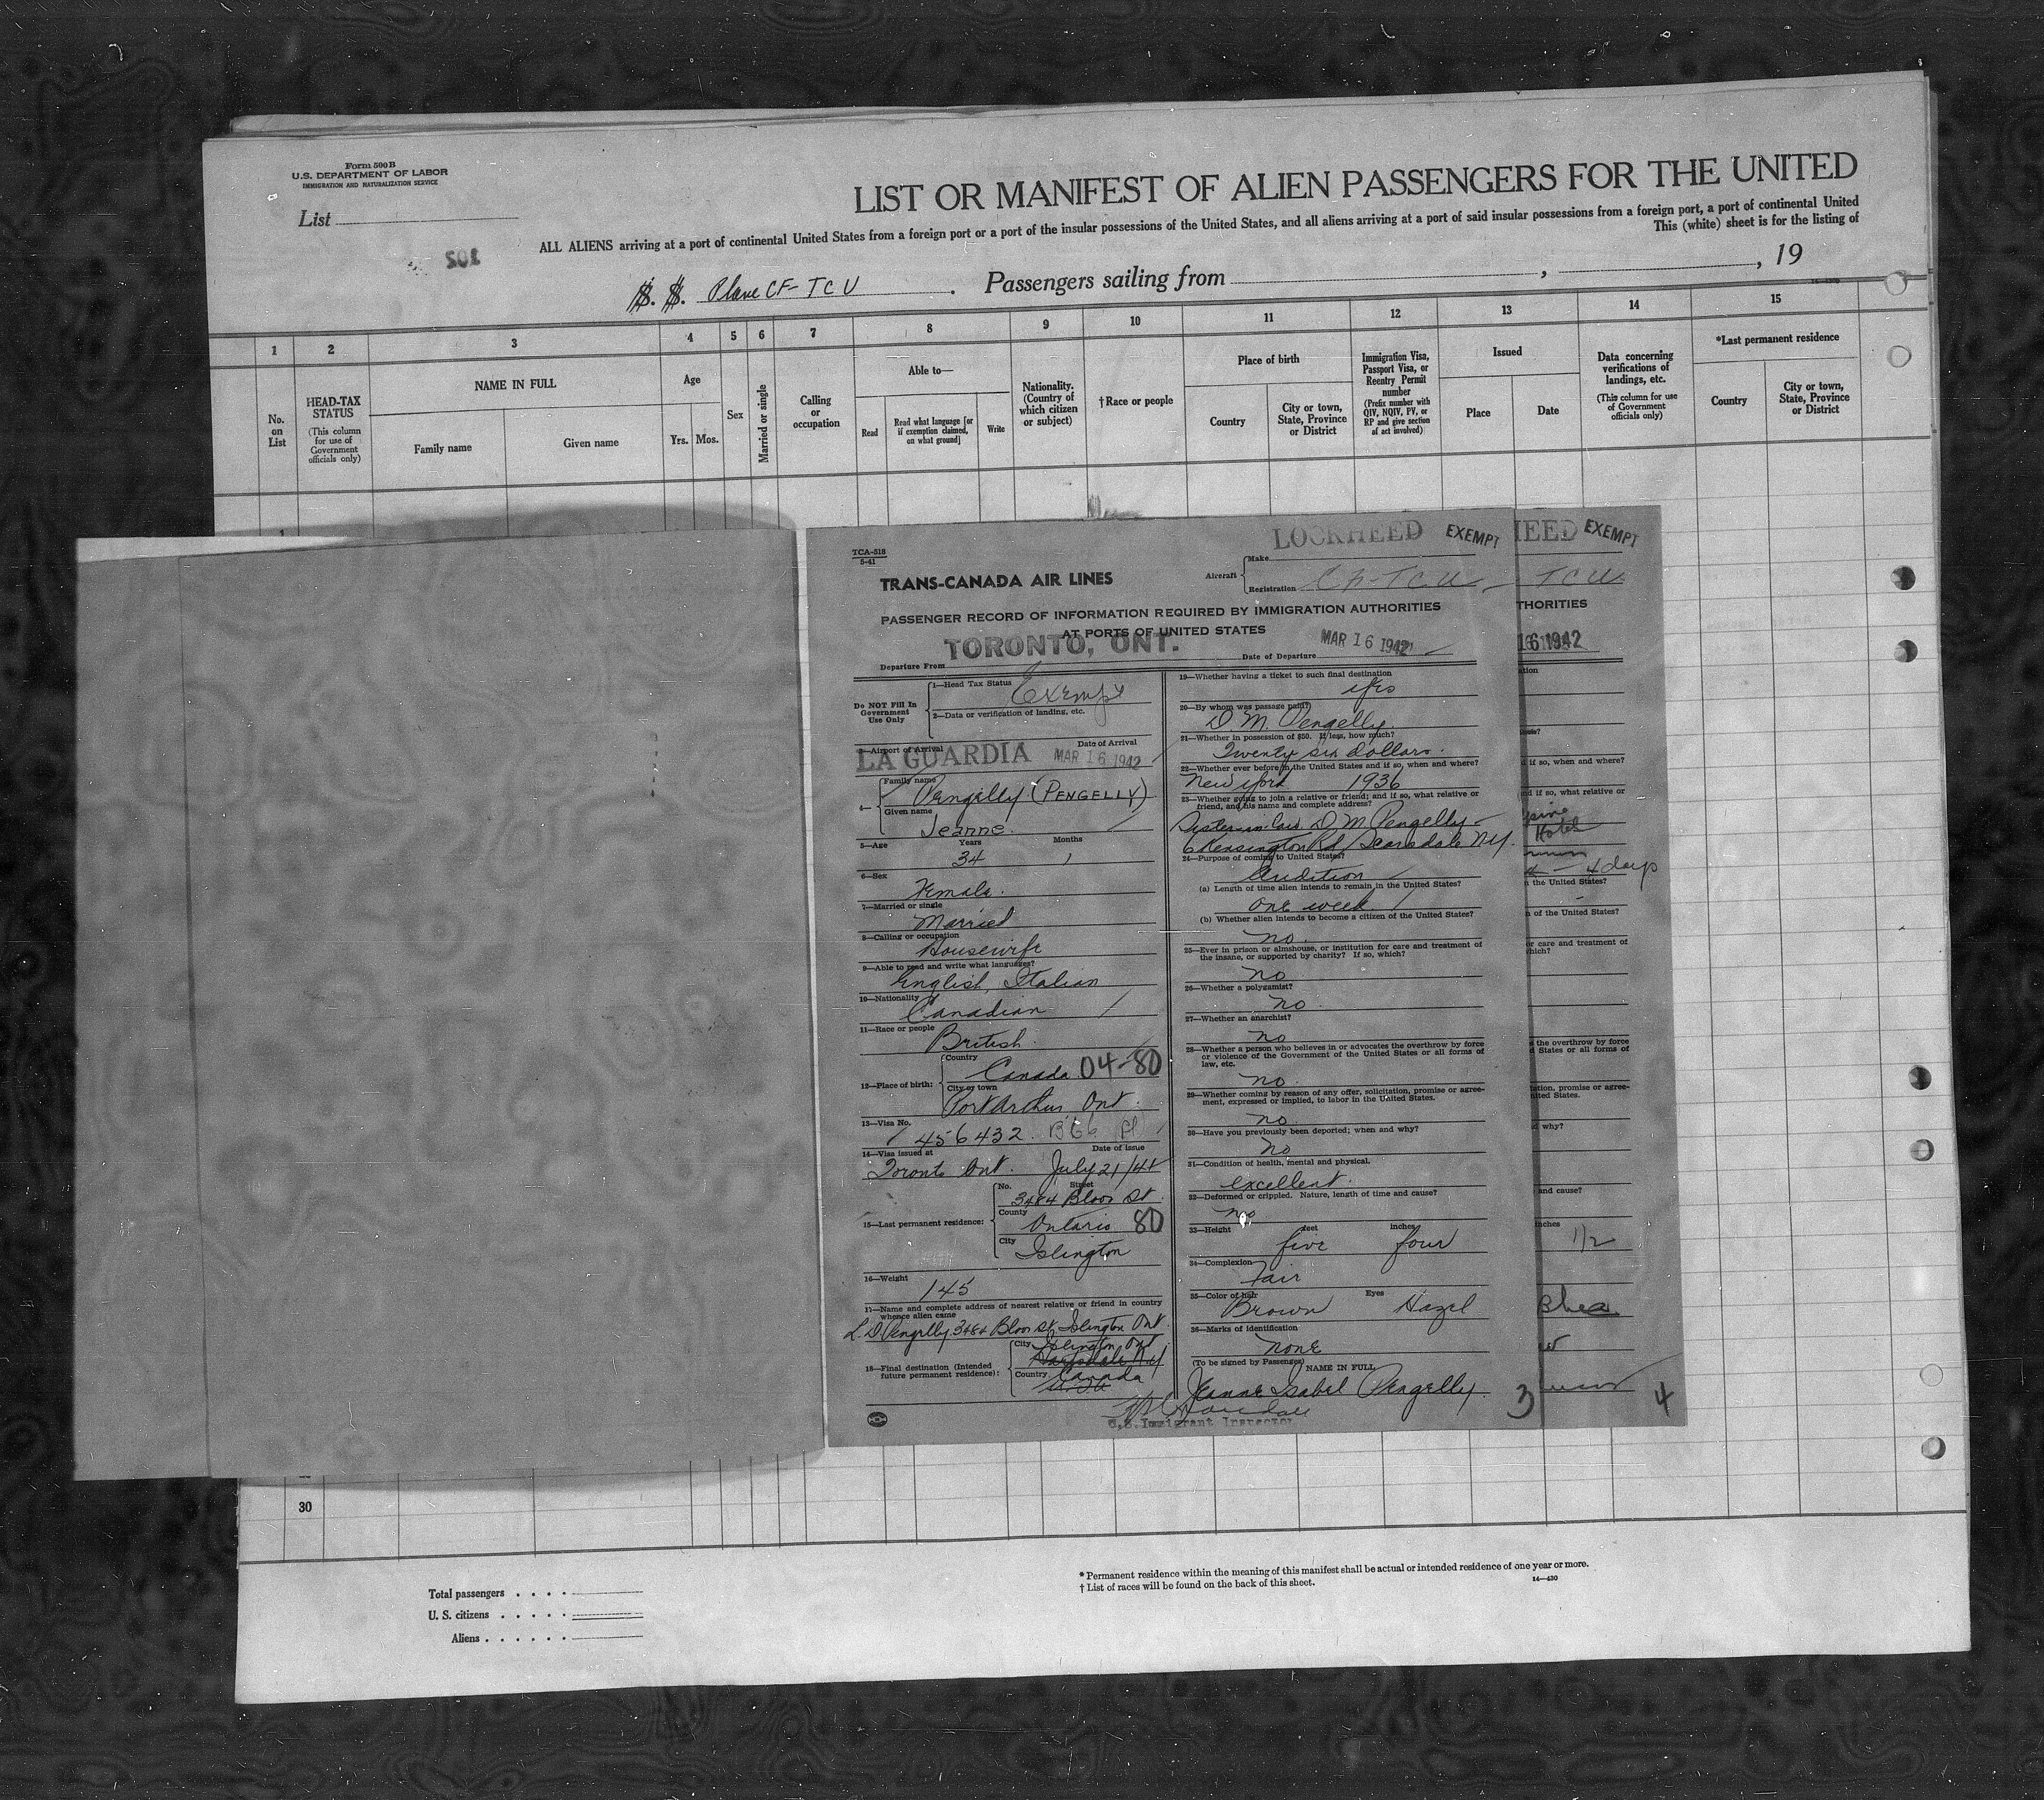 Form 500B
U.S. DEPARTMENT OF LABOR
IMMIGRATION AND NATURALIZATION SERVICE
List
202
LIST OR MANIFEST OF ALIEN PASSENGERS FOR THE UNITED
ALL ALIENS arriving at a port of continental United States from a foreign port or a port of the insular possessions of the United States, and all aliens arriving at a port of said insular possessions from a foreign port, a port of continental United
This (white) sheet is for the listing of
S. S. Plane CF-TCU . Passengers sailing from , , 19
1 2 3 4 5 6 7 8 9 10 11 12 13 14 15
No. on List
HEAD-TAX STATUS
(This column for use of Government officials only)
NAME IN FULL
Family name
Given name
Age
Yrs. Mos.
Sex
Married or single
Calling or occupation
Able to—
Read
Read what language [or if exemption claimed, on what ground]
Write
Nationality. (Country of which citizen or subject)
†Race or people
Place of birth
Country
City or town, State, Province or District
Immigration Visa, Passport Visa, or Reentry Permit number
(Prefix number with QIV, NQIV, PV, or RP and give section of act involved)
Issued
Place
Date
Data concerning verifications of landings, etc.
(This column for use of Government officials only)
*Last permanent residence
Country
City or town, State, Province or District
TCA-518
5-41
TRANS-CANADA AIR LINES
Aircraft
Make LOCKHEED EXEMPT
Registration CF-TCU
PASSENGER RECORD OF INFORMATION REQUIRED BY IMMIGRATION AUTHORITIES
AT PORTS OF UNITED STATES
Departure From TORONTO, ONT.
Date of Departure MAR 16 1942
Do NOT Fill In Government Use Only
1—Head Tax Status Exempt
2—Data or verification of landing, etc.
3—Airport of Arrival LA GUARDIA
Date of Arrival MAR 16 1942
4— Family name Pengelly (PENGELLY)
Given name Jeanne.
5—Age Years 34 Months
6—Sex Female.
7—Married or single Married
8—Calling or occupation Housewife
9—Able to read and write what languages? English, Italian
10—Nationality Canadian
11—Race or people British.
12—Place of birth: Country Canada 04-80
City or town Port Arthur, Ont.
13—Visa No. 456432. B66 Pl
14—Visa issued at Toronto Ont. Date of Issue July 21/41
15—Last permanent residence: No. Street 3484 Bloor St.
County Ontario 80
City Islington
16—Weight 145
17—Name and complete address of nearest relative or friend in country whence alien came
L. D. Pengelly 3484 Bloor St. Islington Ont.
18—Final destination (Intended future permanent residence): City Islington, Ont
Country Canada
19—Whether having a ticket to such final destination
yes
20—By whom was passage paid?
D. M. Pengelly.
21—Whether in possession of $50. If less, how much?
Twenty six dollars.
22—Whether ever before in the United States and if so, when and where?
New York 1936
23—Whether going to join a relative or friend; and if so, what relative or friend, and his name and complete address?
Sister-in-law D M Pengelly -
6 Kensington Rd, Scarsdale N.Y.
24—Purpose of coming to United States?
Audition
(a) Length of time alien intends to remain in the United States?
one week
(b) Whether alien intends to become a citizen of the United States?
no.
25—Ever in prison or almshouse, or institution for care and treatment of the insane, or supported by charity? If so, which?
no
26—Whether a polygamist?
no.
27—Whether an anarchist?
no
28—Whether a person who believes in or advocates the overthrow by force or violence of the Government of the United States or all forms of law, etc.
no.
29—Whether coming by reason of any offer, solicitation, promise or agreement, expressed or implied, to labor in the United States.
no.
30—Have you previously been deported; when and why?
no
31—Condition of health, mental and physical.
excellent.
32—Deformed or crippled. Nature, length of time and cause?
no
33—Height feet five inches four
34—Complexion
Fair
35—Color of hair Brown Eyes Hazel
36—Marks of identification
none
(To be signed by Passenger) NAME IN FULL
Jeanne Isabel Pengelly.
U.S. Immigrant Inspector
3
HEED EXEMPT
TCU
THORITIES
16 1942
if so, when and where?
nd if so, what relative or
Hotel
4 days
n the United States?
n of the United States?
or care and treatment of
which?
s the overthrow by force
d States or all forms of
tation, promise or agree-
nited States.
why?
and cause?
inches
1/2
4
30
Total passengers . . . .
U. S. citizens . . . . .
Aliens . . . . . .
* Permanent residence within the meaning of this manifest shall be actual or intended residence of one year or more.
† List of races will be found on the back of this sheet.
14—430